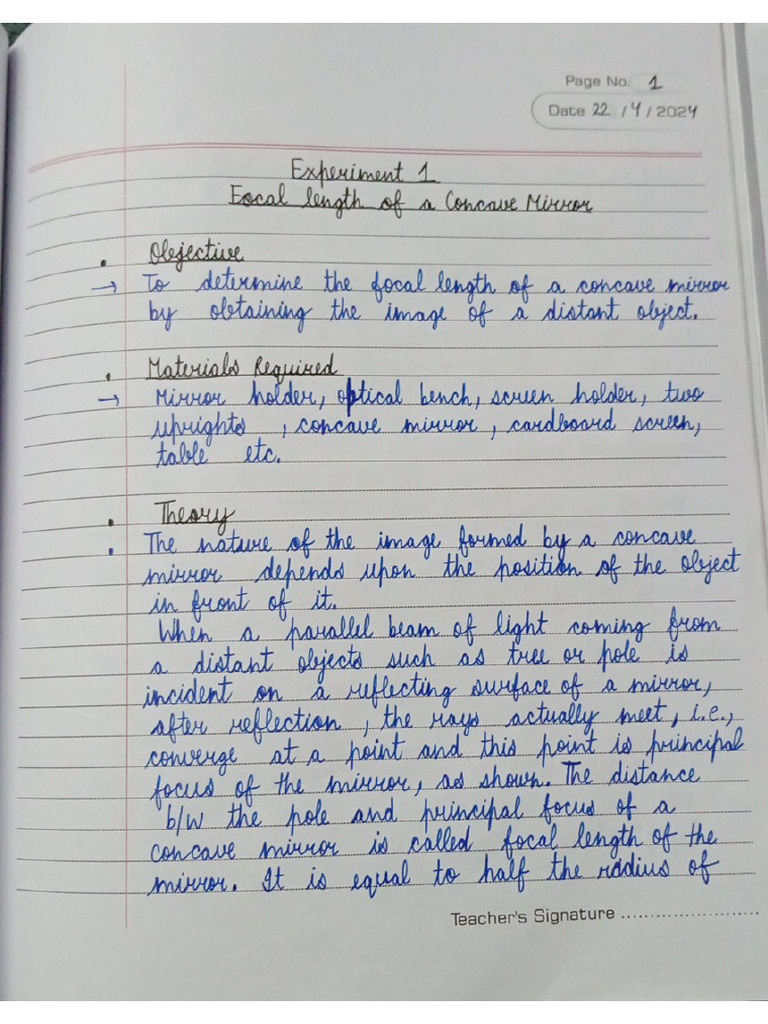 Page No. 1
Date 22 / 4 / 2024
Experiment 1
Focal length of a Concave Mirror
• Objective
→ To determine the focal length of a concave mirror
by obtaining the image of a distant object.
• Materials Required
→ Mirror holder, optical bench, screen holder, two
uprights , concave mirror , cardboard screen,
table etc.
• Theory
• The nature of the image formed by a concave
mirror depends upon the position of the object
in front of it.
When a parallel beam of light coming from
a distant objects such as tree or pole is
incident on a reflecting surface of a mirror,
after reflection , the rays actually meet , i.e.,
converge at a point and this point is principal
focus of the mirror, as shown. The distance
b/w the pole and principal focus of a
concave mirror is called focal length of the
mirror. It is equal to half the radius of
Teacher's Signature ........................